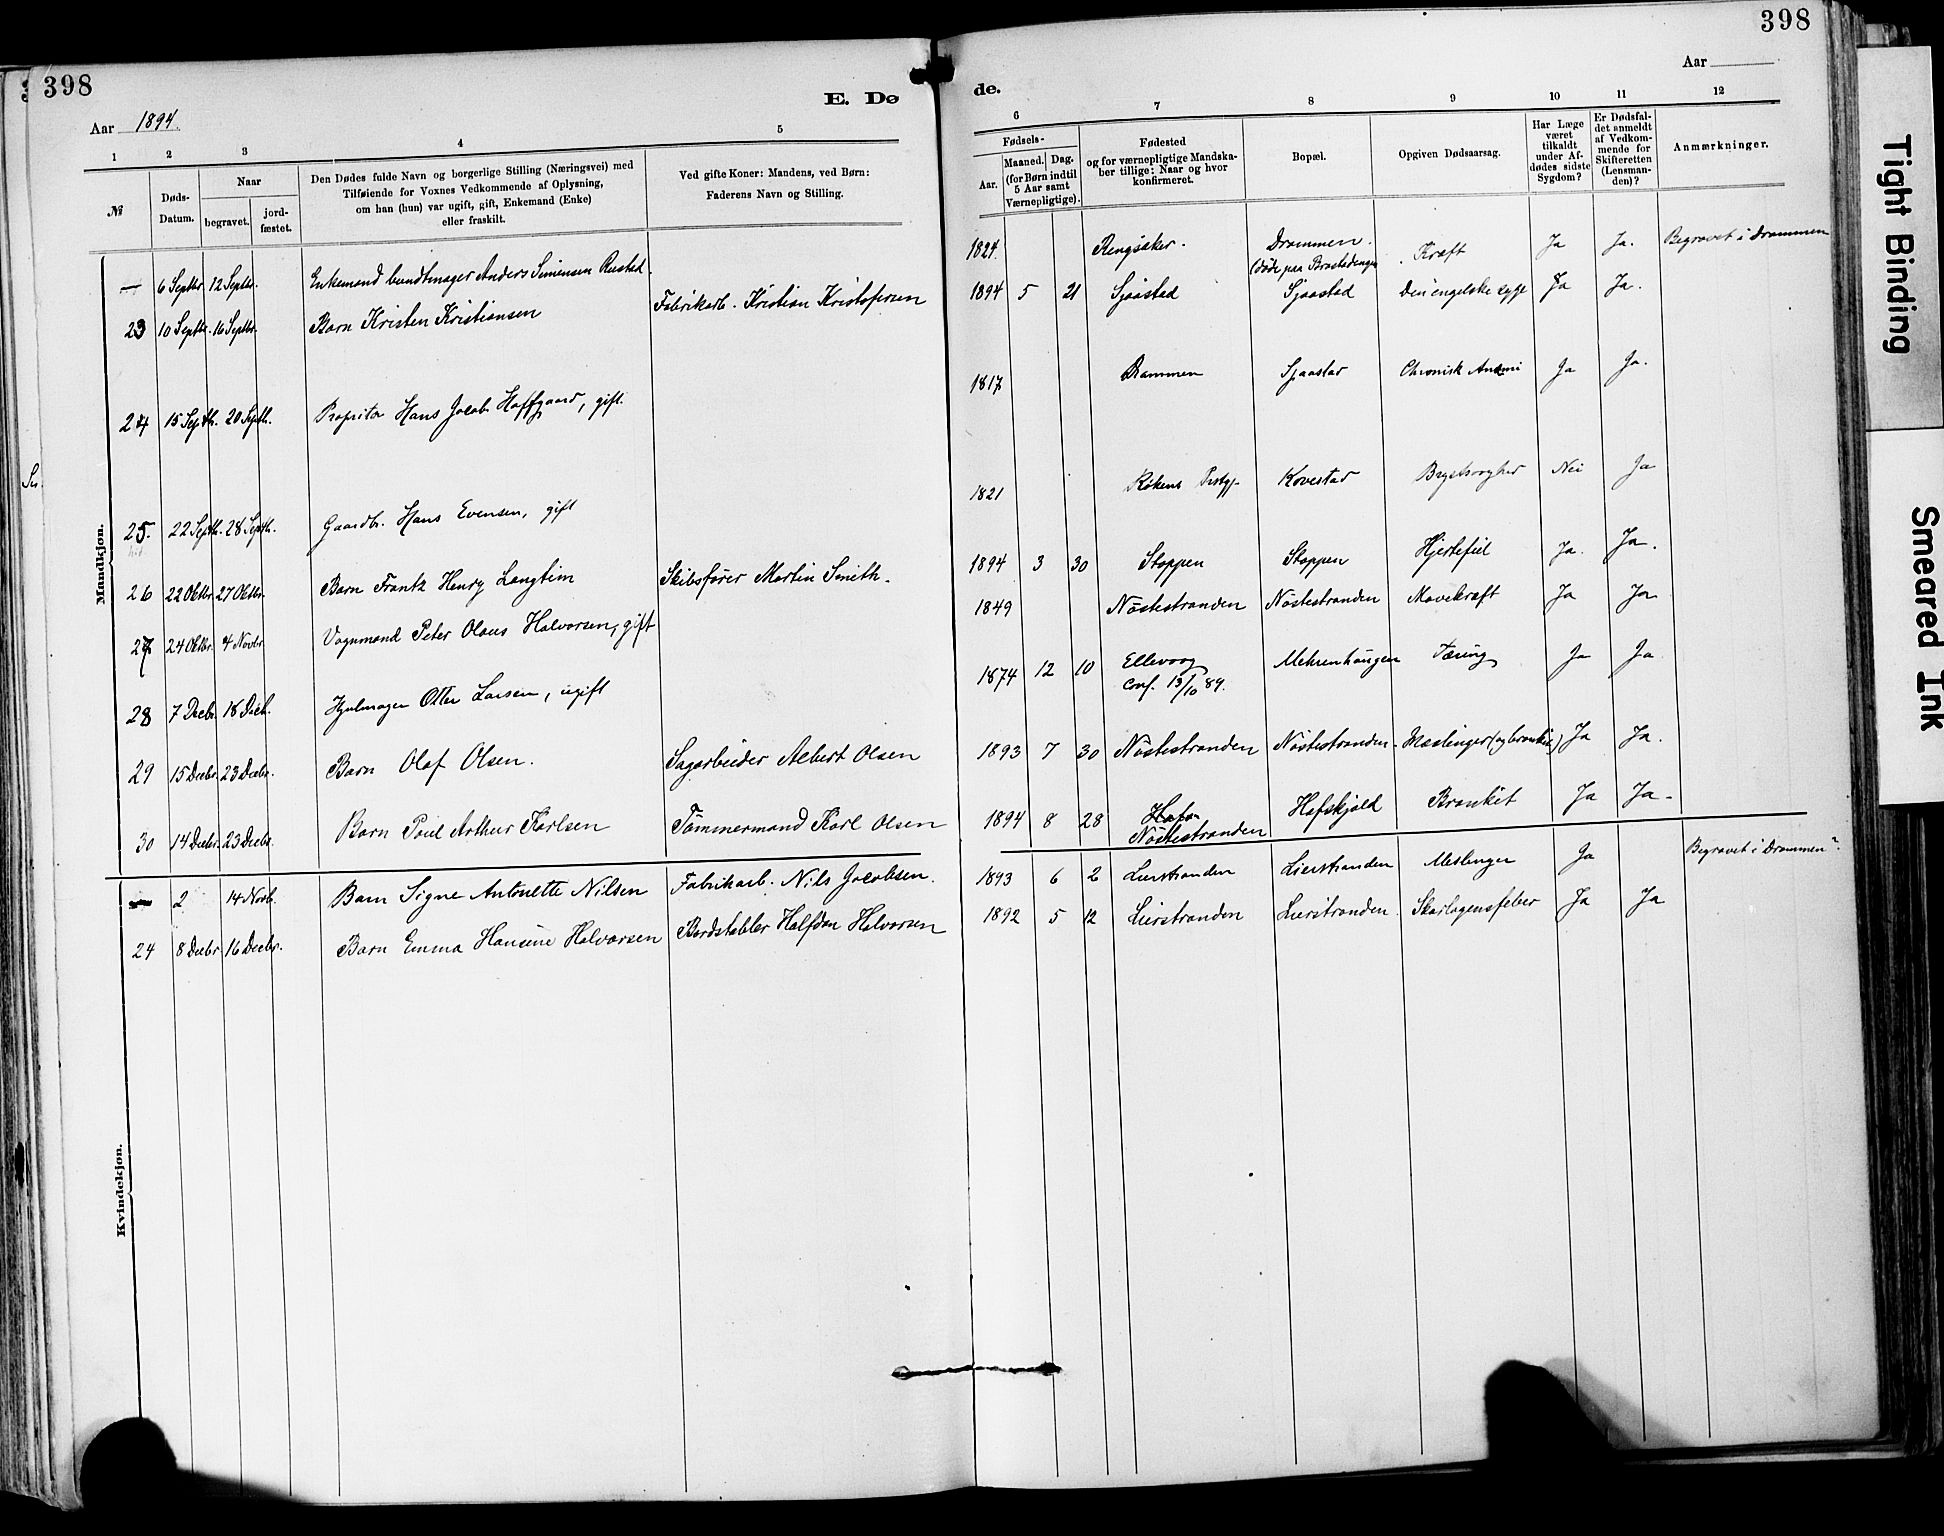 398
398
E. Dø
de.
Aar 1894.
Aar
1 2 3 4 5
6 7 8 9 10 11 12
№
Døds-
Datum.
Naar
begravet.
jord-
fæstet.
Den Dødes fulde Navn og borgerlige Stilling (Næringsvei) med
Tilføiende for Voxnes Vedkommende af Oplysning,
om han (hun) var ugift, gift, Enkemand (Enke)
eller fraskilt.
Ved gifte Koner: Mandens, ved Børn:
Faderens Navn og Stilling.
Fødsels-
Aar.
Maaned. Dag.
(for Børn indtil
5 Aar samt
Værnepligtige).
Fødested
og for værnepligtige Mandska-
ber tillige: Naar og hvor
konfirmeret.
Bopæl.
Opgiven Dødsaarsag.
Har Læge
været
tilkaldt
under Af-
dødes sidste
Sygdom?
Er Dødsfal-
det anmeldt
af Vedkom-
mende for
Skifteretten
(Lensman-
den)?
Anmærkninger.
Mandkjøn.
— 6 Septbr 12 Septbr. Enkemand bundtmager Anders Simensen Rustad. 1824. Ringsaker. Drammen. Kræft Ja Ja. Begravet i Drammen
(døde paa Brastadengen
23 10 Septbr. 16 Septbr. Barn Kristen Kristiansen Fabrikarb. Kristian Kristofersen 1894 5 21 Sjaastad Sjaastad Den engelske syge Ja Ja.
24 15 Septh. 20 Septh. Propritær Hans Jacob Hoffgaard, gift. 1817 Drammen Sjaastad Chronisk Anæmi Ja Ja.
25. 22 Septh. 28 Septh. Gaardbr. Hans Evensen, gift 1821 Røkens Prstgj. Kovestad Nei Ja
26 22 Oktbr. 27 Oktbr. Barn Frantz Henry Langtim Skibsfører Martin Smith. 1894 3 30 Stoppen Stoppen Hjertefeil Ja. Ja.
27 24 Oktbr. 4 Novbr. Vognmand Peter Olaus Halvorsen, gift 1849 Nøstestranden Nøstestranden Mavekræft Ja Ja
28 7 Decbr. 18 Decb. Hjulmager Otter Larsen, ugift 1874 12 10 Ellevoog Mehrenhaugen Tæring Ja Ja
Conf. 13/10 89.
29 15 Decbr. 23 Decbr. Barn Olaf Olsen. Sagarbeider Albert Olsen 1893 7 30 Nøstestranden Nøstestranden Meslinger (og bronkit) Ja Ja.
30 14 Decbr. 23 Decbr. Barn Poul Arthur Karlsen Tømmermand Karl Olsen 1894 8 28 Nøstestranden Hafskjold Bronkit Ja Ja
Kvindekjøn.
— 2 14 Novb. Barn Signe Antonette Nilsen Fabrikarb. Nils Jacobsen. 1893 6 2 Lierstranden Lierstranden Meslinger Ja Begravet i Drammen.
24 8 Decbr 16 Decbr. Barn Emma Hansine Halvorsen Bordstabler Halfdan Halvorsen 1892 5 12 Lierstranden Lierstranden Skarlagensfeber Ja Ja
Tight Binding
Smeared Ink